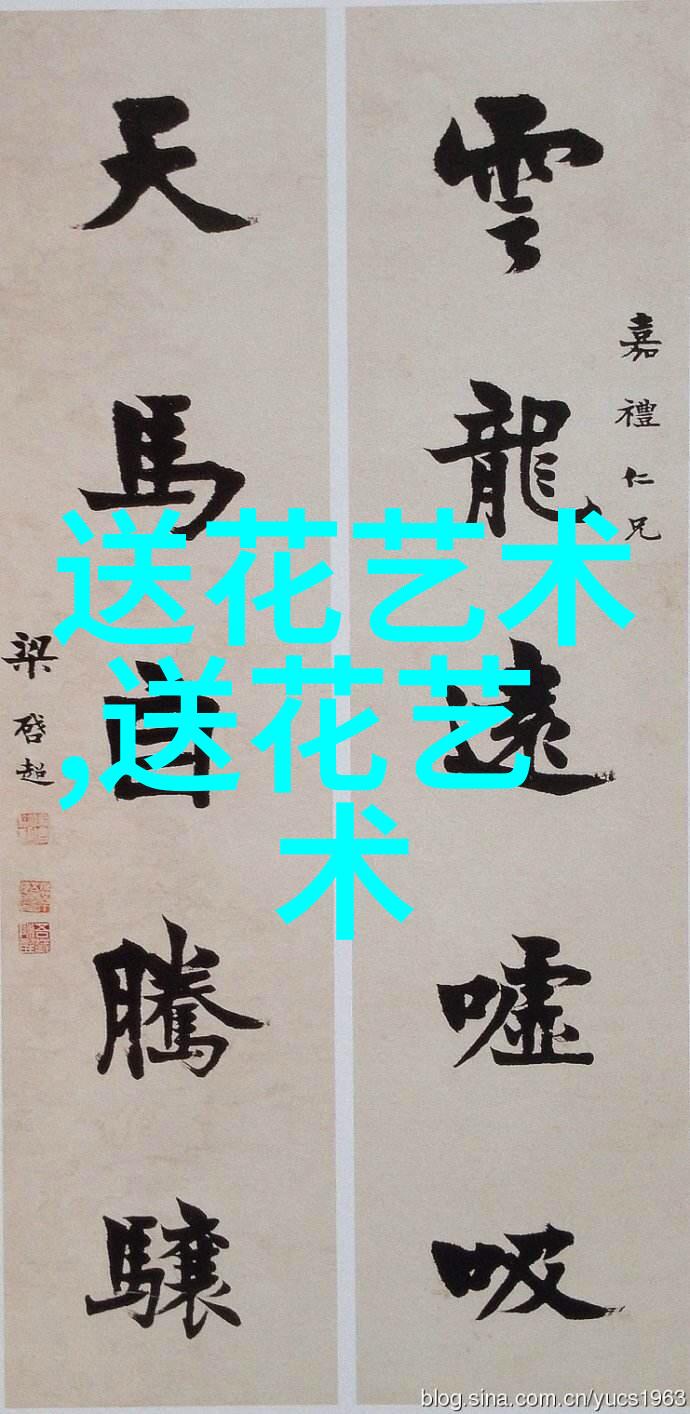 雲龍遠噓吸
嘉禮仁兄
天馬自騰驤
梁啓超
送花艺术
,送花艺
术
blog.sina.com.cn/yucs1963